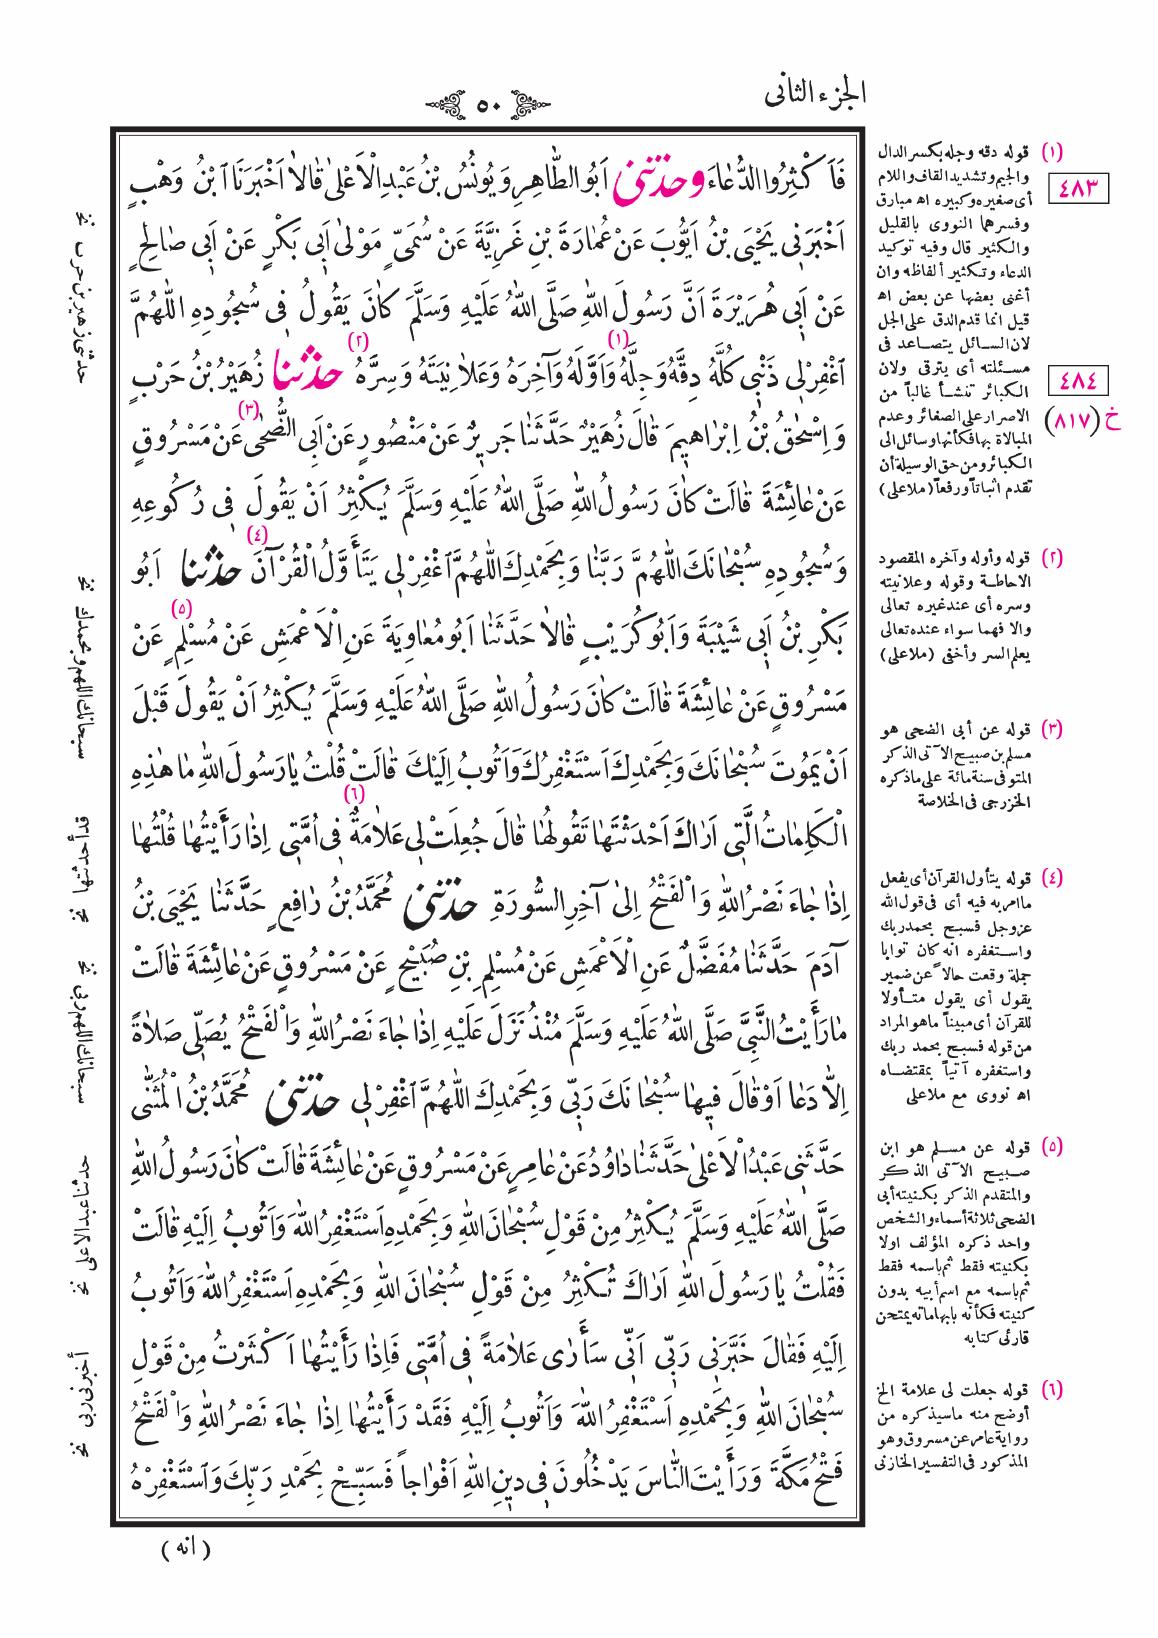 الجزء الثانى
٥٠
فَاَكْثِرُوا الدُّعَاءَ وحَدَّثَنِى اَبُو الطَّاهِرِ وَيُونُسُ بْنُ عَبْدِ الْاَعْلٰى قَالَا اَخْبَرَنَا ابْنُ وَهْبٍ
اَخْبَرَنِى يَحْيَى بْنُ اَيُّوبَ عَنْ عُمَارَةَ بْنِ غَزِيَّةَ عَنْ سُمَىٍّ مَوْلٰى اَبِى بَكْرٍ عَنْ اَبِى صَالِحٍ
عَنْ اَبِى هُرَيْرَةَ اَنَّ رَسُولَ اللهِ صَلَّى اللهُ عَلَيْهِ وَسَلَّمَ كَانَ يَقُولُ فِى سُجُودِهِ اللّٰهُمَّ
اغْفِرْلِى ذَنْبِى كُلَّهُ دِقَّهُ وَجِلَّهُ (١) وَاَوَّلَهُ وَآخِرَهُ وَعَلَانِيَتَهُ وَسِرَّهُ (٢) حَدَّثَنَا زُهَيْرُ بْنُ حَرْبٍ
وَاِسْحٰقُ بْنُ اِبْرَاهِيمَ قَالَ زُهَيْرٌ حَدَّثَنَا جَرِيرٌ عَنْ مَنْصُورٍ عَنْ اَبِى الضُّحٰى (٣) عَنْ مَسْرُوقٍ
عَنْ عَائِشَةَ قَالَتْ كَانَ رَسُولُ اللهِ صَلَّى اللهُ عَلَيْهِ وَسَلَّمَ يُكْثِرُ اَنْ يَقُولَ فِى رُكُوعِهِ
وَسُجُودِهِ سُبْحَانَكَ اللّٰهُمَّ رَبَّنَا وَبِحَمْدِكَ اللّٰهُمَّ اغْفِرْلِى يَتَأَوَّلُ الْقُرْآنَ (٤) حَدَّثَنَا اَبُو
بَكْرِ بْنُ اَبِى شَيْبَةَ وَاَبُو كُرَيْبٍ قَالَا حَدَّثَنَا اَبُو مُعَاوِيَةَ عَنِ الْاَعْمَشِ عَنْ مُسْلِمٍ (٥) عَنْ
مَسْرُوقٍ عَنْ عَائِشَةَ قَالَتْ كَانَ رَسُولُ اللهِ صَلَّى اللهُ عَلَيْهِ وَسَلَّمَ يُكْثِرُ اَنْ يَقُولَ قَبْلَ
اَنْ يَمُوتَ سُبْحَانَكَ وَبِحَمْدِكَ اَسْتَغْفِرُكَ وَاَتُوبُ اِلَيْكَ قَالَتْ قُلْتُ يَا رَسُولَ اللهِ مَا هٰذِهِ
الْكَلِمَاتُ الَّتِى اَرَاكَ اَحْدَثْتَهَا تَقُولُهَا قَالَ جُعِلَتْ لِى عَلَامَةٌ (٦) فِى اُمَّتِى اِذَا رَأَيْتُهَا قُلْتُهَا
اِذَا جَاءَ نَصْرُ اللهِ وَالْفَتْحُ اِلٰى آخِرِ السُّورَةِ حَدَّثَنِى مُحَمَّدُ بْنُ رَافِعٍ حَدَّثَنَا يَحْيَى بْنُ
آدَمَ حَدَّثَنَا مُفَضَّلٌ عَنِ الْاَعْمَشِ عَنْ مُسْلِمِ بْنِ صُبَيْحٍ عَنْ مَسْرُوقٍ عَنْ عَائِشَةَ قَالَتْ
مَا رَأَيْتُ النَّبِىَّ صَلَّى اللهُ عَلَيْهِ وَسَلَّمَ مُنْذُ نَزَلَ عَلَيْهِ اِذَا جَاءَ نَصْرُ اللهِ وَالْفَتْحُ يُصَلِّى صَلَاةً
اِلَّا دَعَا اَوْ قَالَ فِيهَا سُبْحَانَكَ رَبِّى وَبِحَمْدِكَ اللّٰهُمَّ اغْفِرْلِى حَدَّثَنِى مُحَمَّدُ بْنُ الْمُثَنّٰى
حَدَّثَنِى عَبْدُ الْاَعْلٰى حَدَّثَنَا دَاوُدُ عَنْ عَامِرٍ عَنْ مَسْرُوقٍ عَنْ عَائِشَةَ قَالَتْ كَانَ رَسُولُ اللهِ
صَلَّى اللهُ عَلَيْهِ وَسَلَّمَ يُكْثِرُ مِنْ قَوْلِ سُبْحَانَ اللهِ وَبِحَمْدِهِ اَسْتَغْفِرُ اللهَ وَاَتُوبُ اِلَيْهِ قَالَتْ
فَقُلْتُ يَا رَسُولَ اللهِ اَرَاكَ تُكْثِرُ مِنْ قَوْلِ سُبْحَانَ اللهِ وَبِحَمْدِهِ اَسْتَغْفِرُ اللهَ وَاَتُوبُ
اِلَيْهِ فَقَالَ خَبَّرَنِى رَبِّى اَنِّى سَأَرٰى عَلَامَةً فِى اُمَّتِى فَاِذَا رَأَيْتُهَا اَكْثَرْتُ مِنْ قَوْلِ
سُبْحَانَ اللهِ وَبِحَمْدِهِ اَسْتَغْفِرُ اللهَ وَاَتُوبُ اِلَيْهِ فَقَدْ رَأَيْتُهَا اِذَا جَاءَ نَصْرُ اللهِ وَالْفَتْحُ
فَتْحُ مَكَّةَ وَرَأَيْتَ النَّاسَ يَدْخُلُونَ فِى دِينِ اللهِ اَفْوَاجاً فَسَبِّحْ بِحَمْدِ رَبِّكَ وَاسْتَغْفِرْهُ
( انه )
(١) قوله دقه وجله بكسر الدال
والجيم وتشديد القاف واللام
أى صغيره وكبيره اه مبارق
وفسرهما النووى بالقليل
والكثير قال وفيه توكيد
الدعاء وتكثير ألفاظه وان
أغنى بعضها عن بعض اه
قيل انما قدم الدق على الجل
لان السائل يتصاعد فى
مسئلته أى يترقى ولان
الكبائر تنشأ غالباً من
الاصرار على الصغائر وعدم
المبالاة بها فكأنها وسائل الى
الكبائر ومن حق الوسيلة أن
تقدم اثباتاً ورفعاً (ملاعلى)
٤٨٣
٤٨٤
خ (٨١٧)
(٢) قوله وأوله وآخره المقصود
الاحاطة وقوله وعلانيته
وسره أى عند غيره تعالى
والا فهما سواء عنده تعالى
يعلم السر وأخفى (ملاعلى)
(٣) قوله عن أبى الضحى هو
مسلم بن صبيح الآتى الذكر
المتوفى سنة مائة على ماذكره
الخزرجى فى الخلاصة
(٤) قوله يتأول القرآن أى يفعل
ما امر به فيه أى فى قول الله
عزوجل فسبح بحمد ربك
واستغفره انه كان توابا
جملة وقعت حالاً عن ضمير
يقول أى يقول متأولا
للقرآن أى مبيناً ماهو المراد
من قوله فسبح بحمد ربك
واستغفره آتياً بمقتضاه
اه نووى مع ملاعلى
(٥) قوله عن مسلم هو ابن
صبيح الآتى الذكر
والمتقدم الذكر بكنيته أبى
الضحى ثلاثة أسماء والشخص
واحد ذكره المؤلف اولا
بكنيته فقط ثم باسمه فقط
ثم باسمه مع اسم أبيه بدون
كنيته فكأنه بابهاماته يمتحن
قارئى كتابه
(٦) قوله جعلت لى علامة الخ
أوضح منه ماسيذكره من
رواية عامر عن مسروق وهو
المذكور فى التفسير الخازنى
حدثنى زهير بن حرب نخ
سبحانك اللهم وبحمدك نخ
سبحانك اللهم ربى نخ
حدثنا عبد الاعلى نخ
أخبرنى ربى نخ